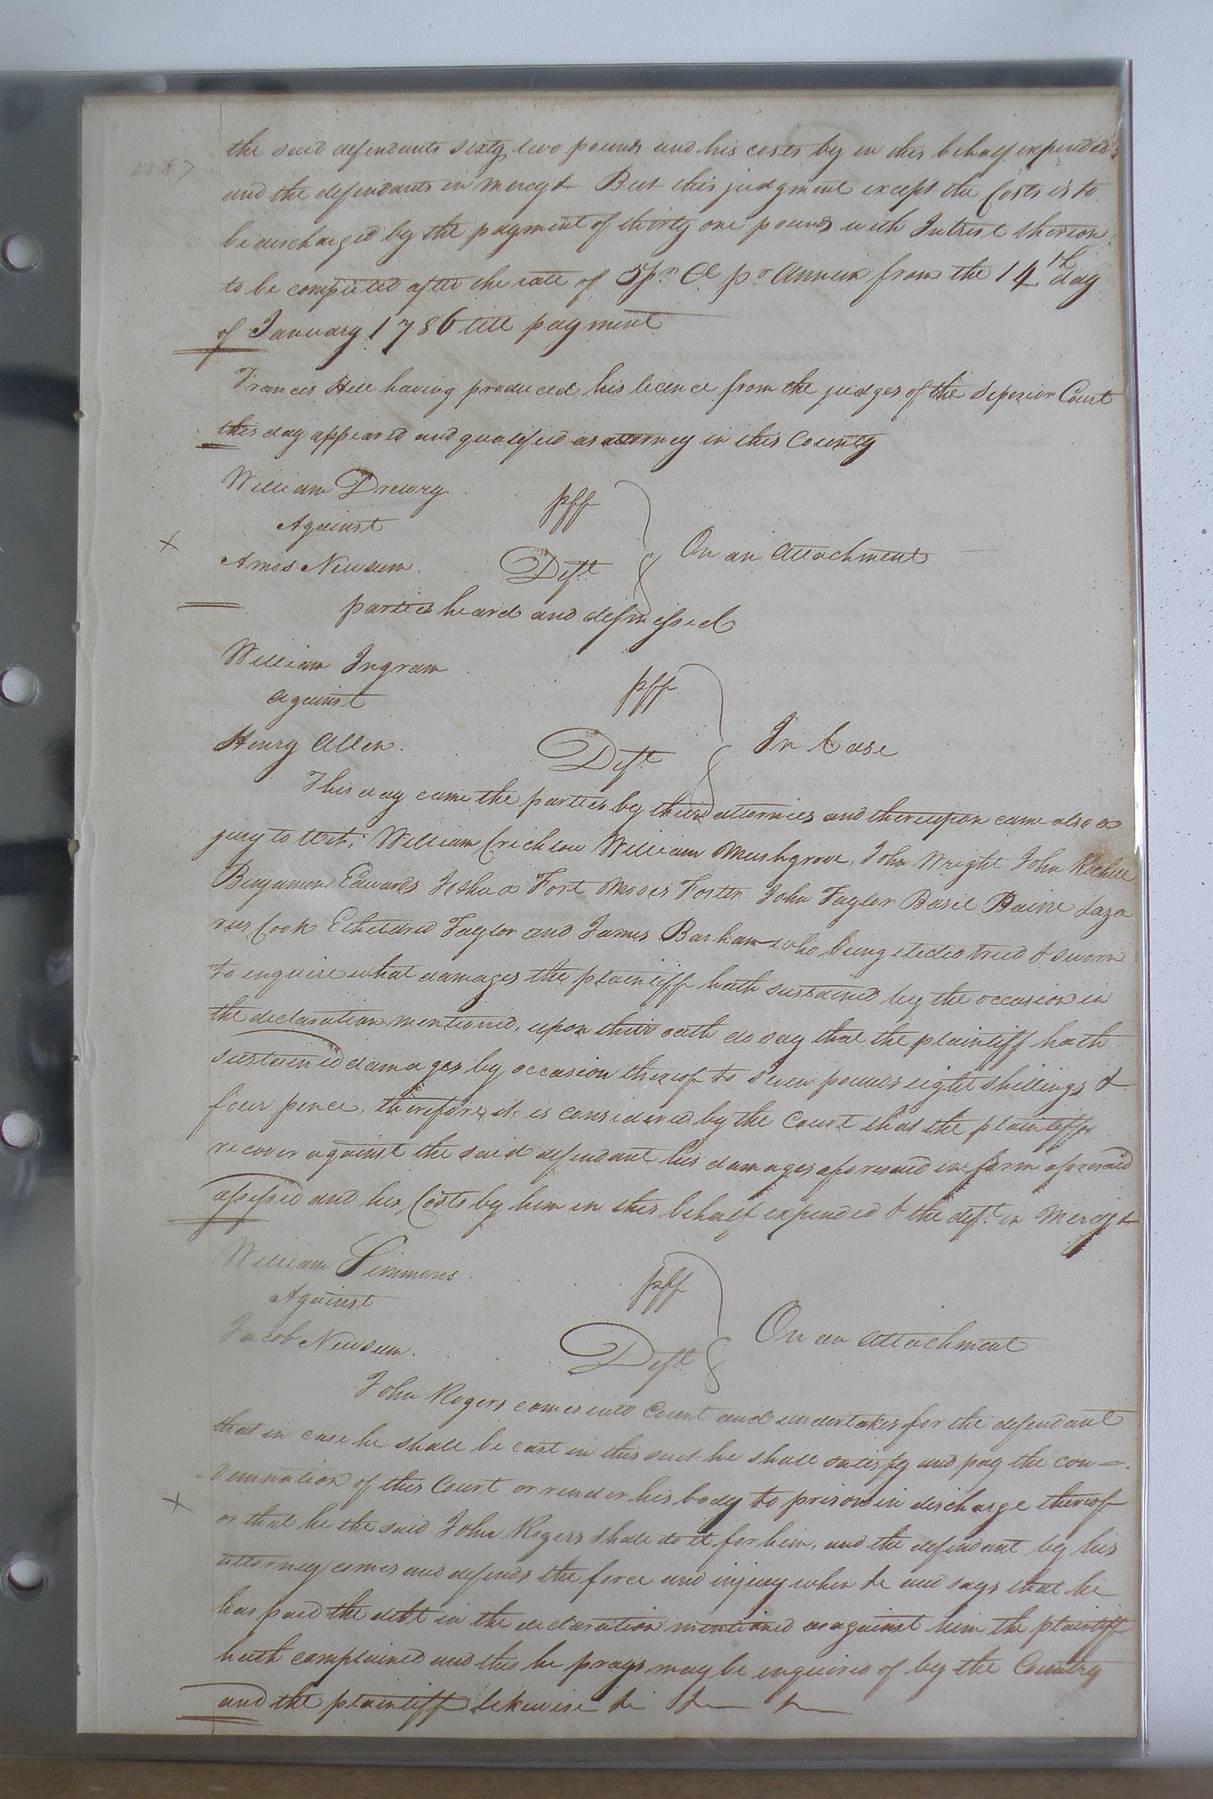 1787
the said defendants sixty two pounds and his costs by in this behalf expended
and the defendants in mercy & But this judgment except the Costs is to
be discharged by the payment of thirty one pounds with Intrest thereon
to be computed after the rate of 5 pr Ct pr Annum from the 14th day
of January 1786 till payment
Francis Hill having produced his licence from the judges of the Superior Court
this day appeared and qualified as attorney in this County
William Drewry plff
Against
Amos Newsum Deft On an Attachment
parties heard and dismissed
William Ingram plff
against
Henry Allen Deft In Case
This day came the parties by their attornies and thereupon came also a
jury to wit; William Crichlow William Mushgrove, John Wright John Rochell
Benjamin Edwards Joshua Fort Moses Foster John Taylor Basil Baine Laza
rus Cook Etheldred Taylor and James Barham who being elected tried & sworn
to enquire what damages the plaintiff hath sustained by the occasion in
the declaration mentioned, upon their oath do say that the plaintiff hath
sustained damages by occasion thereof to seven pounds eight shillings &
four pence, therefore it is considered by the Court that the plaintiff
recover against the said defendant his damages aforesaid in form aforesaid
assessed and his Costs by him in this behalf expended & the deft. in Mercy &
William Simmons plff
Against
Jacob Newsum Deft On an Attachment
John Rogers comes into Court and undertakes for the defendant
that in case he shall be cast in this suit he shall satisfy and pay the con-
demnation of this Court or render his body to prison in discharge thereof
or that he the said John Rogers shall do it for him, and the defendant by his
attorney comes and defends the force and injury when &c and says that he
has paid the debt in the declaration mentioned as against him the plaintiff
hath complained and this he prays may be enquired of by the Country
and the plaintiff likewise &c &c &c